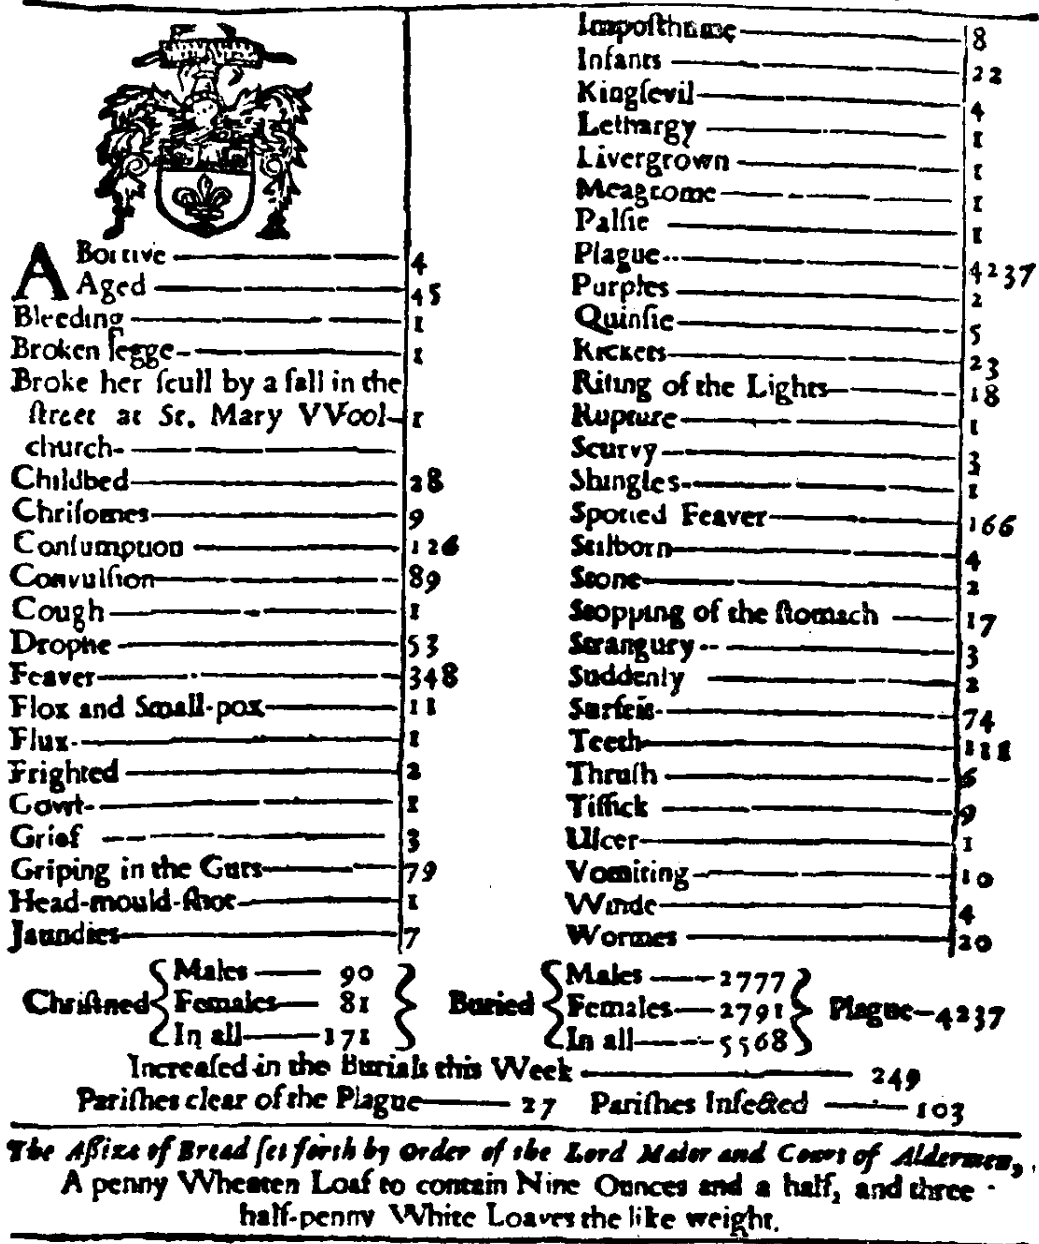 ABortive 4
Aged 45
Bleeding 1
Broken legge 1
Broke her ſcull by a fall in the
ſtreet at St. Mary VVool- 1
church
Childbed 28
Chriſomes 9
Conſumption 126
Convulſion 89
Cough 1
Dropſie 53
Feaver 348
Flox and Small-pox 11
Flux 1
Frighted 2
Gowt 1
Grief 3
Griping in the Guts 79
Head-mould-ſhot 1
Jaundies 7
Impoſthume 8
Infants 22
Kingſevil 4
Lethargy 1
Livergrown 1
Meagrome 1
Palſie 1
Plague 4237
Purples 2
Quinſie 5
Rickets 23
Riſing of the Lights 18
Rupture 1
Scurvy 3
Shingles 1
Spotted Feaver 166
Stilborn 4
Stone 2
Stopping of the ſtomach 17
Strangury 3
Suddenly 2
Surfeit 74
Teeth 111
Thruſh 6
Tiſſick 9
Ulcer 1
Vomiting 10
Winde 4
Wormes 20
Chriſtned
Males 90
Females 81
In all 171
Buried
Males 2777
Females 2791
In all 5568
Plague 4237
Increaſed in the Burials this Week 249
Pariſhes clear of the Plague 27 Pariſhes Infected 103
The Aſſize of Bread ſet forth by Order of the Lord Maior and Court of Aldermen,
A penny Wheaten Loaf to contain Nine Ounces and a half, and three
half-penny White Loaves the like weight.